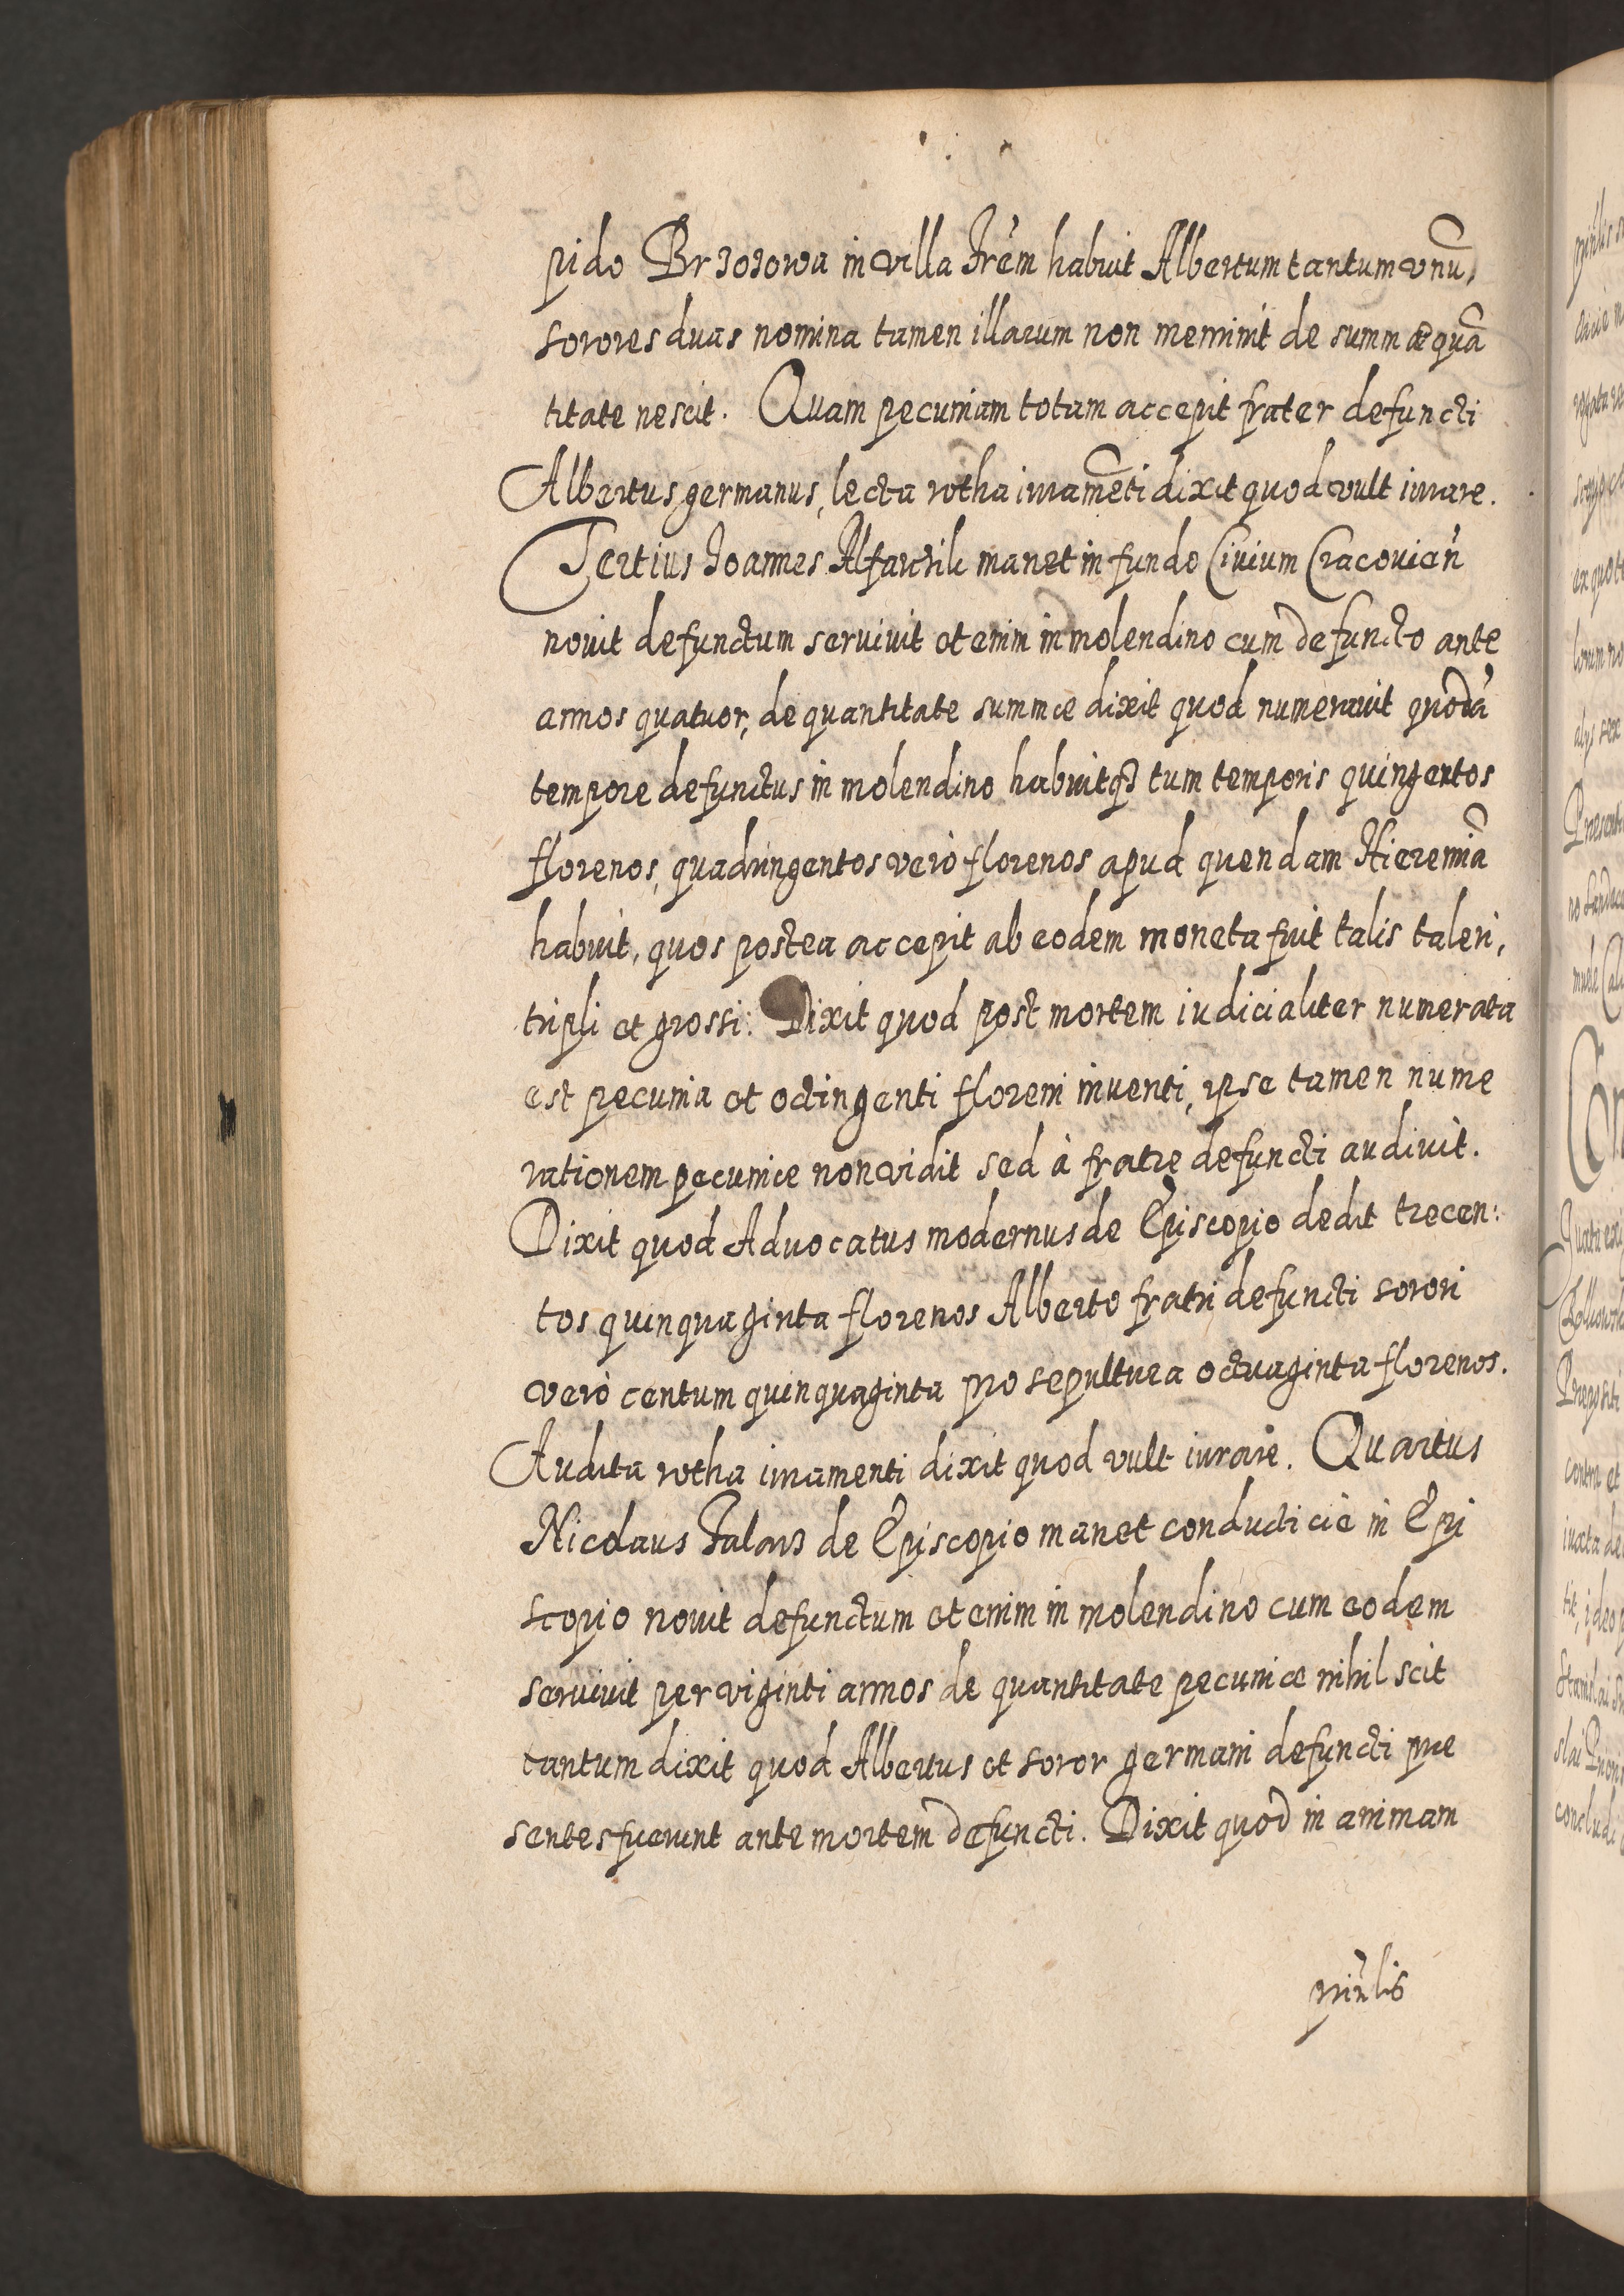 pido Brzozowa in villa Frēm habuit Albertum tantum vnū,
sorores duas nomina tamen illarum non meminit de summæ quā
titate nescit. Quam pecuniam totam accepit frater defuncti
Albertus germanus, lecta rotha iuramēti dixit quod vult iurare.
Tertius Joannes manet in fundo Ciuium Cracouień
nouit defunctum seruiuit etenim in molendino cum defuncto ante
annos quatuor, de quantitate summæ dixit quod numerauit quodā
tempore defunctus in molendino habuitq3 tum temporis quingentos
florenos, quadringentos verò florenos apud quendam Hieremiā
habuit, quos postea accepit ab eodem moneta fuit talis taleri,
tripli et grossi: Dixit quod post mortem iudicialiter numerata
est pecunia et octingenti floreni inuenti, ipse tamen nume
rationem pecuniæ non vidit sed à fratre defuncti audiuit.
Dixit quod Aduocatus modernus de Episcopio dedit trecen:
tos quinquaginta florenos Alberto fratri defuncti sorori
verò centum quinquaginta pro sepultura octuaginta florenos.
Audita rotha iuramenti dixit quod vult iurare. Quartus
Nicolaus de Episcopio manet conducticiè in Epi
scopio nouit defunctum etenim in molendino cum eodem
seruiuit per viginti annos de quantitate pecuniæ nihil scit
tantum dixit quod Albertus et soror germani defuncti præ
sentes fuerunt ante mortem defuncti. Dixit quod in animam